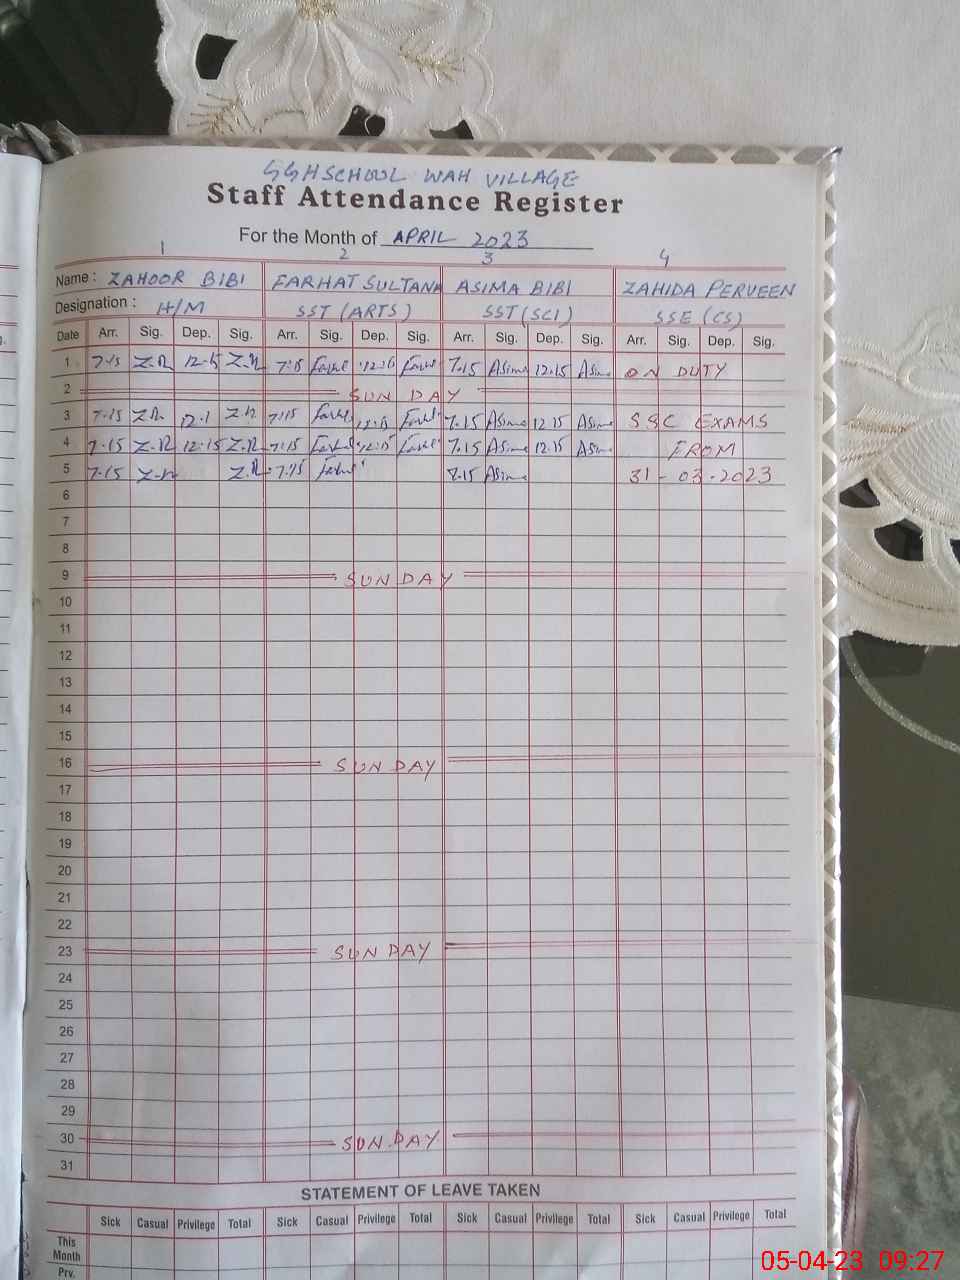 GGHSCHOOL WAH VILLAGE
Staff Attendance Register
For the Month of APRIL 2023
1 2 3 4
Name : ZAHOOR BIBI FARHAT SULTANA ASIMA BIBI ZAHIDA PERVEEN
Designation : H/M SST (ARTS) SST (SCI) SSE (CS)
Date Arr. Sig. Dep. Sig. Arr. Sig. Dep. Sig. Arr. Sig. Dep. Sig. Arr. Sig. Dep. Sig.
1 7-15 Z.R 12-15 Z.R 7:15 7.15 Asima 12.15 Asima ON DUTY
2 SUNDAY
3 7-15 Z.R 12.1 Z.R 7:15 12:15 7.15 Asima 12.15 Asima SSC EXAMS
4 7-15 Z.R 12-15 Z.R 7:15 12:15 7.15 Asima 12.15 Asima FROM
5 7-15 Z.R Z.R 7:15 7.15 Asima 31-03-2023
6
7
8
9 SUNDAY
10
11
12
13
14
15
16 SUNDAY
17
18
19
20
21
22
23 SUNDAY
24
25
26
27
28
29
30 SUNDAY
31
STATEMENT OF LEAVE TAKEN
Sick Casual Privilege Total Sick Casual Privilege Total Sick Casual Privilege Total Sick Casual Privilege Total
This
Month
Prv.
05-04-23 09:27